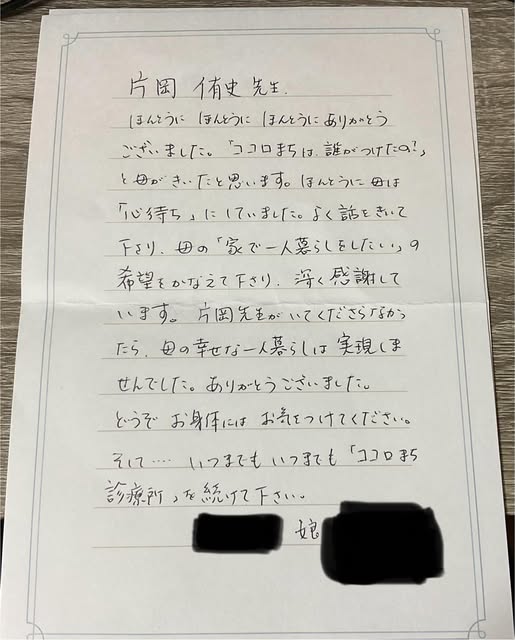 片岡 侑史 先生.
ほんとうに ほんとうに ほんとうに ありがとう
ございました。「ココロまちは、誰がつけたの?」
と母がきいたと思います。ほんとうに母は
「心待ち」にしていました。よく話をきいて
下さり、母の「家で一人暮らしをしたい」の
希望をかなえて下さり、深く感謝して
います。片岡先生がいてくださらなかっ
たら、母の幸せな一人暮らしは実現しま
せんでした。ありがとうございました。
どうぞ お身体には お気をつけてください。
そして‥‥ いつまでも いつまでも「ココロまち
診療所」を続けて下さい。
娘